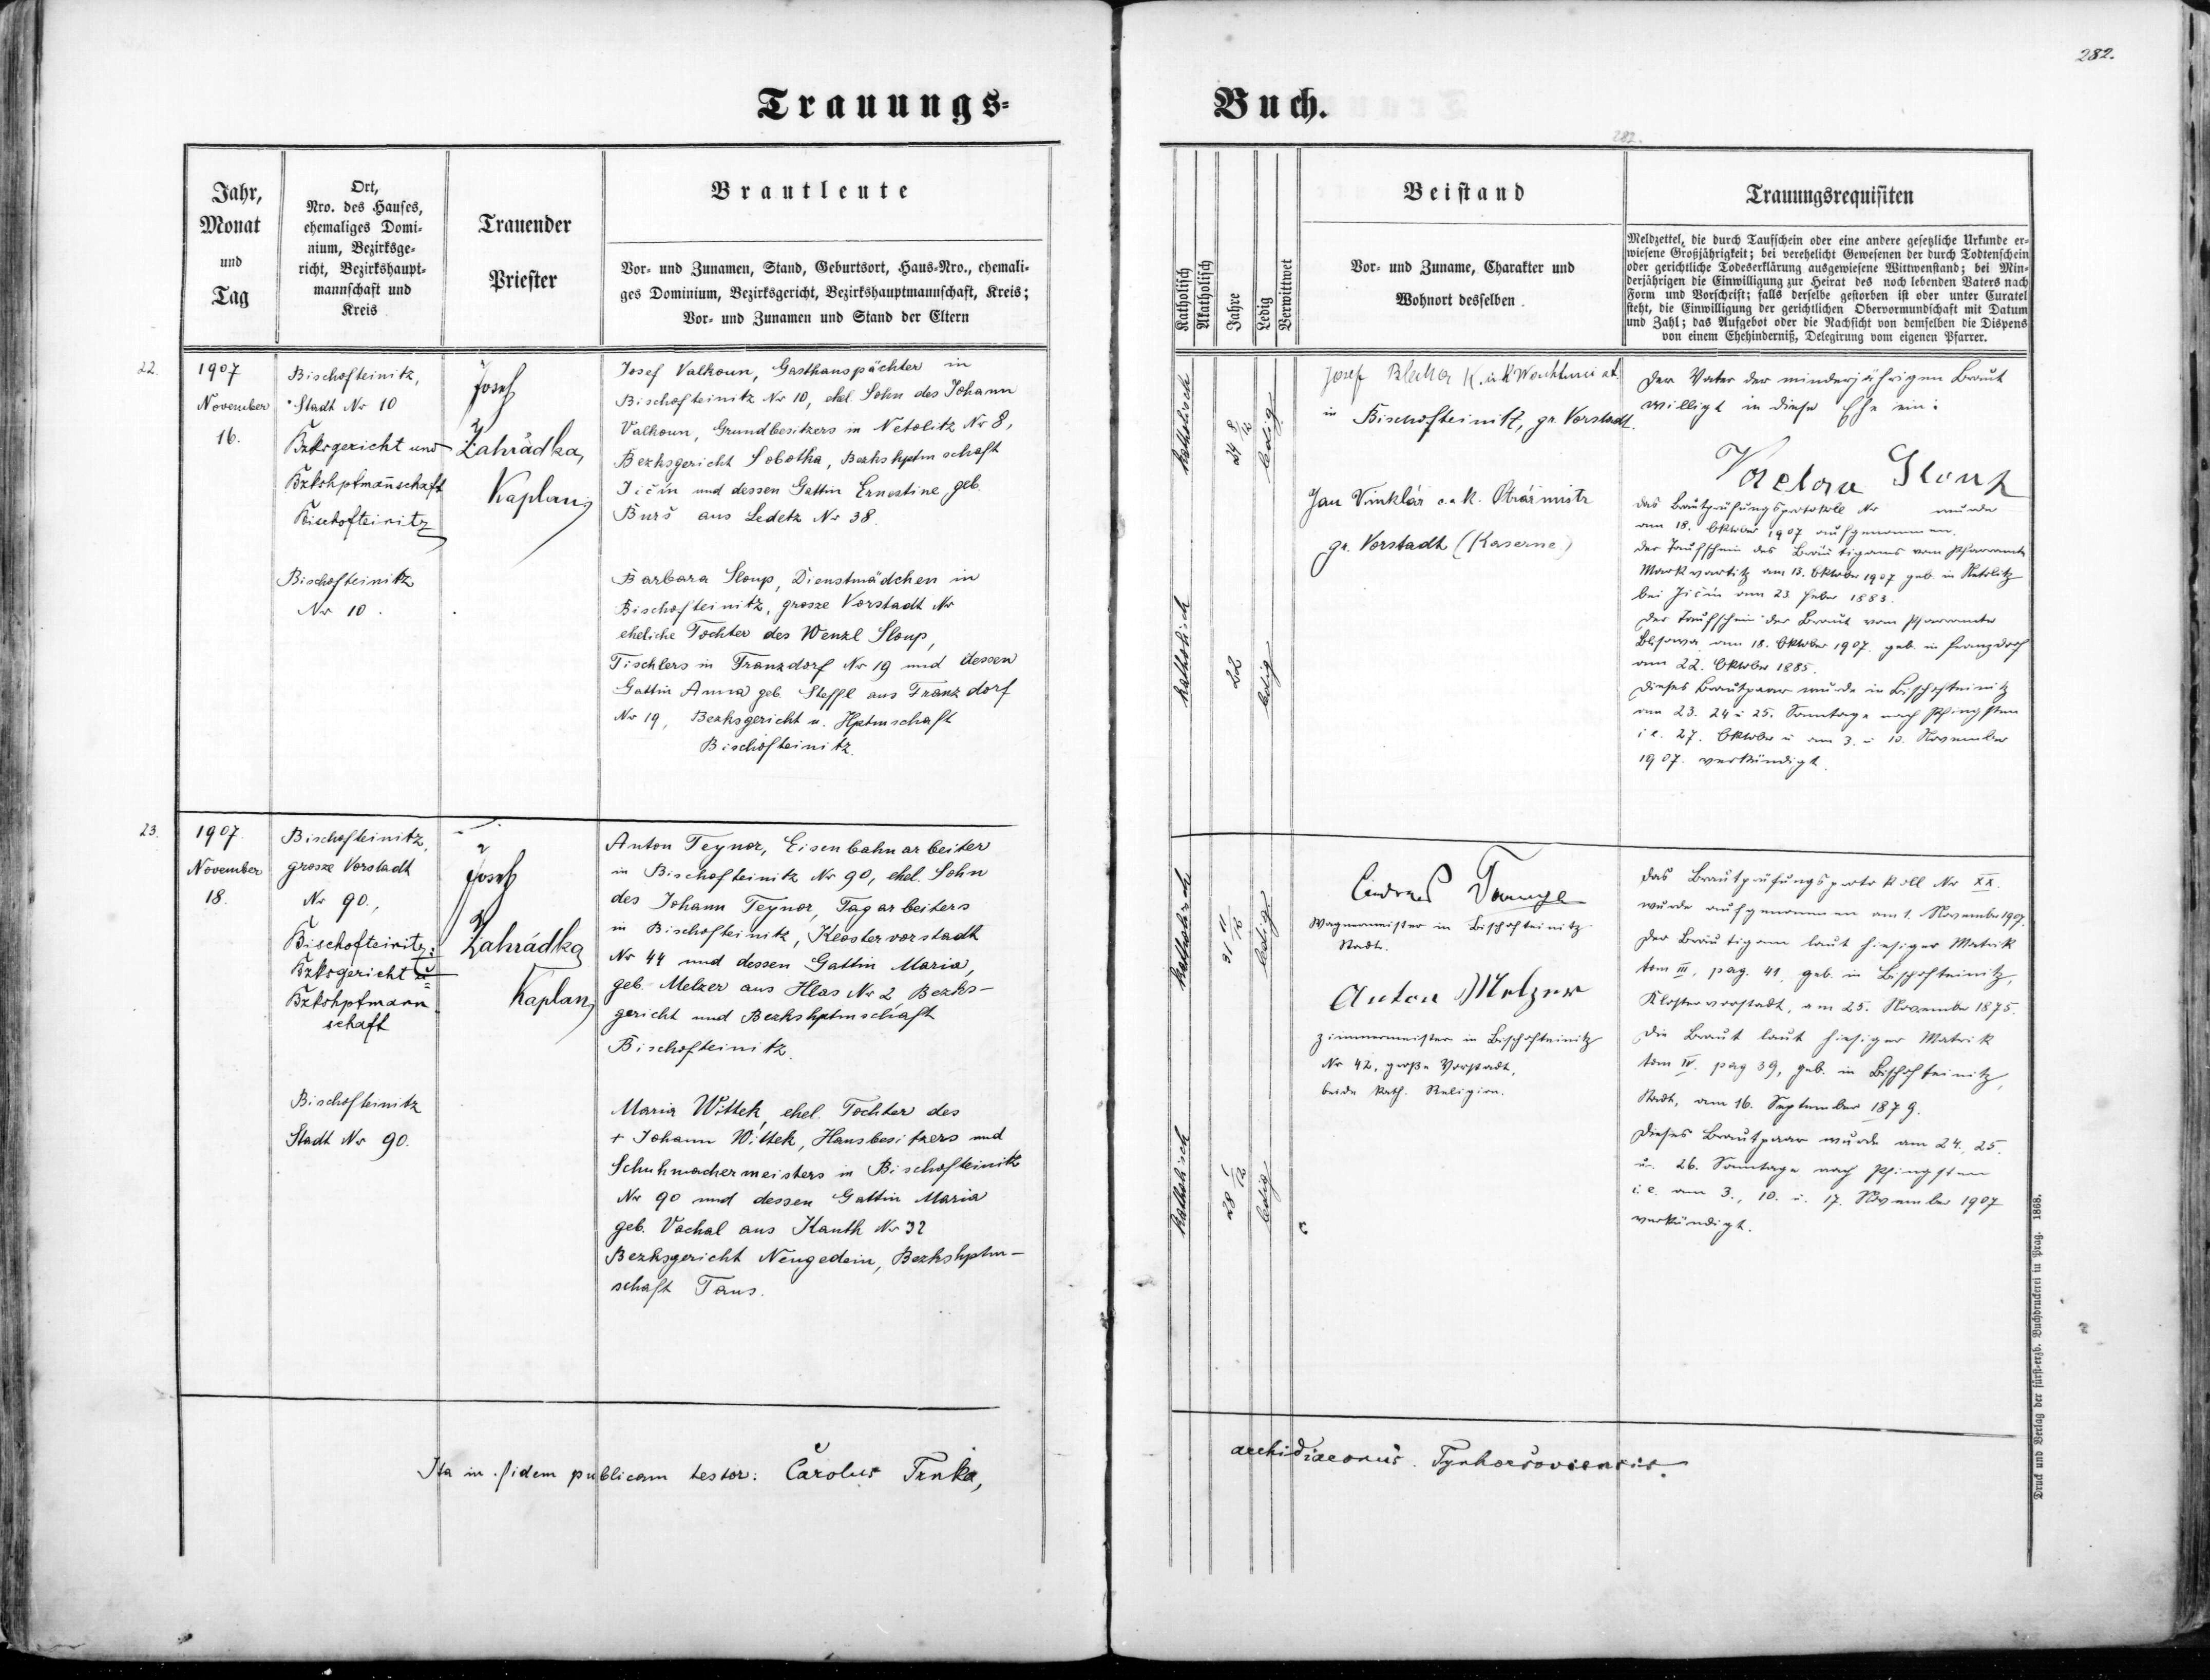 282.
Trauungs-
Buch.
282.
Jahr,
Monat
und
Tag
Ort,
Nro. des Hauses,
ehemaliges Domi-
nium, Bezirksge-
richt, Bezirkshaupt-
mannschaft und
Kreis
Trauender
Priester
Brautleute
Vor- und Zunamen, Stand, Geburtsort, Haus-Nro., ehemali-
ges Dominium, Bezirksgericht, Bezirkshauptmannschaft, Kreis;
Vor- und Zunamen und Stand der Eltern
Katholisch
Akatholisch
Jahre
Ledig
Verwittwet
Beistand
Vor- und Zuname, Charakter und
Wohnort desselben.
Trauungsrequisiten
Meldzettel, die durch Taufschein oder eine andere gesetzliche Urkunde er-
wiesene Großjährigkeit; bei verehelicht Gewesenen der durch Todtenschein
oder gerichtliche Todeserklärung ausgewiesene Wittwenstand; bei Min-
derjährigen die Einwilligung zur Heirat des noch lebenden Vaters nach
Form und Vorschrift; falls derselbe gestorben ist oder unter Curatel
steht, die Einwilligung der gerichtlichen Obervormundschaft mit Datum
und Zahl; das Aufgebot oder die Nachsicht von demselben die Dispens
von einem Ehehinderniß, Delegirung vom eigenen Pfarrer.
22.
1907
November
16.
Bischofteinitz,
Stadt Nr 10
Bzksgericht und
Bzkshptmañschaft
Bischofteinitz
Bischofteinitz
Nr 10.
Josef
Zahrádka,
Kaplan
Josef Valkoun, Gasthauspächter in
Bischofteinitz Nr 10, ehel. Sohn des Johann
Valkoun, Grundbesitzers in Netolitz Nr 8,
Bezksgericht Sobotka, Bezkshptmschaft
Jičín und dessen Gattin Ernestine geb.
Burš aus Ledetz Nr 38.
Barbara Sloup, Dienstmädchen in
Bischofteinitz, grosze Vorstadt Nr
eheliche Tochter des Wenzl Sloup,
Tischlers in Franzdorf Nr 19 und dessen
Gattin Anna geb. Steffl aus Franzdorf
Nr 19, Bezksgericht u. Hptmschaft
Bischofteinitz.
katholisch
24 8/12
ledig
katholisch
22
ledig
Josef K. u. k
in Bischofteinitz, gr. Vorstadt.
Jan Vinklář c. a k.
gr. Vorstadt (Kaserne)
Der Vater der minderjährigen Braut
willigt in diese Ehe ein:
Das Brautprüfungsprotokoll Nr wurde
am 18. Oktober 1907 aufgenommen.
Der Taufschein des Bräutigams vom Pfarramte
Markvartitz am 13. Oktober 1907 geb. in Netolitz
bei Jičín am 23. Feber 1883.
Der Taufschein der Braut vom Pfarramte
Blisowa am 18. Oktober 1907. geb. in Franzdorf
am 22. Oktober 1885.
Dieses Brautpaar wurde in Bischofteinitz
am 23. 24 u 25. Sonntage nach Pfingsten
i. e. 27. Oktober u am 3. u 10. November
1907. verkündigt.
23.
1907.
November
18.
Bischofteinitz,
grosze Vorstadt
Nr 90.,
Bischofteinitz:
Bzksgericht u
Bzkshptmann
schaft
Bischofteinitz
Stadt Nr 90.
Josef
Zahrádka
Kaplan
Anton Teynor, Eisenbahnarbeiter
in Bischofteinitz Nr 90, ehel. Sohn
des Johann Teynor, Tagarbeiters
in Bischofteinitz, Klostervorstadt
Nr 44 und dessen Gattin Maria,
geb. Melzer aus Hlas Nr 2 Bezks-
gericht und Bezkshptmschaft
Bischofteinitz.
Maria Wittek, ehel. Tochter des
+ Johann Wittek, Hausbesitzers und
Schuhmachermeisters in Bischofteinitz
Nr 90 und dessen Gattin Maria
geb. Vachal aus Kauth Nr 32
Bezksgericht Neugedein, Bezkshptm-
schaft Taus.
katholisch
31 11/12
ledig
katholisch
28 1/12
ledig
Wagnermeister in Bischofteinitz
Stadt.
Anton Melzer
Zimmermeister in Bischofteinitz
Nr 42, große Vorstadt,
beide kath. Religion.
Das Brautprüfungsprotokoll Nr XX.
wurde aufgenommen am 1. November 1907.
Der Bräutigam laut hiesiger Matrik
tom III, pag. 41, geb. in Bischofteinitz,
Klostervorstadt, am 25. November 1875.
Die Braut laut hiesiger Matrik
tom IV. pag 39, geb. in Bischofteinitz,
Stadt, am 16. September 1879.
Dieses Brautpaar wurde am 24., 25.
u. 26. Sonntage nach Pfingsten
i. e. am 3., 10. u. 17. November 1907
verkündigt.
Ita in fidem publicam testor: Carolus Trnka,
archidiaconus Tynhorsoviensis.
Druck und Verlag der fürst-erzb. Buchdruckerei in Prag. 1868.